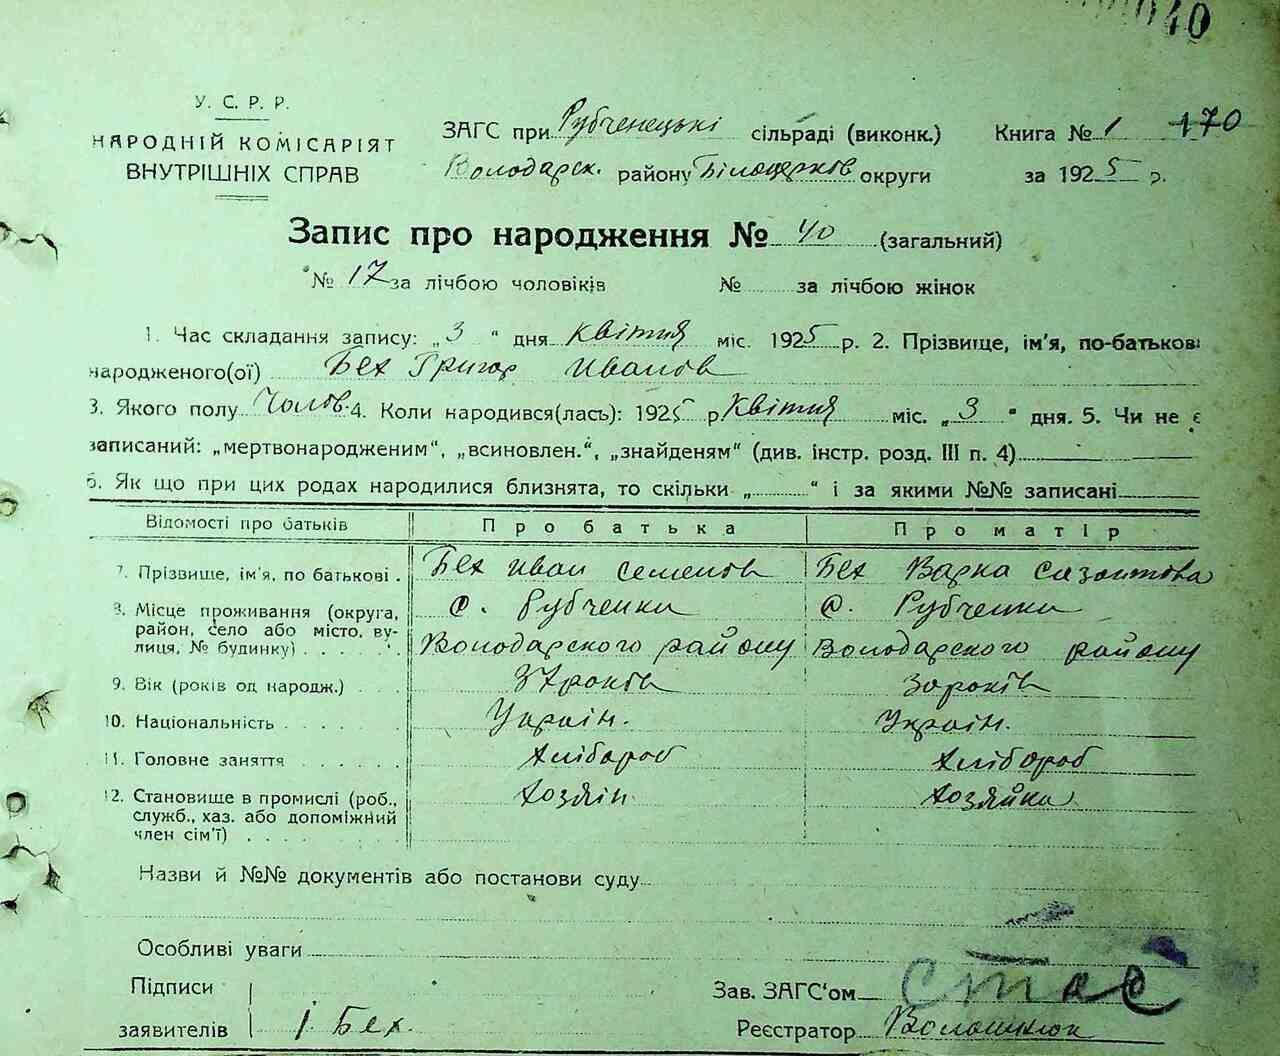 040
У. С. Р. Р.
НАРОДНІЙ КОМІСАРІЯТ
ВНУТРІШНІХ СПРАВ
ЗАГС при Рубченецькі сільраді (виконк.) Книга № 1 170
Володарск. району Білоцерков округи за 1925 р.
Запис про народження № 40 (загальний)
№ 17 за лічбою чоловіків № за лічбою жінок
1. Час складання запису: „3" дня квітня міс. 1925 р. 2. Прізвище, ім'я, по-батькові
народженого(ої) Бех Григор Иванов
3. Якого полу Чолов. 4. Коли народився(лась): 1925 р Квітня міс. „3" дня. 5. Чи не є
записаний: „мертвонародженим", „всиновлен.", „знайденям" (див. інстр. розд. III п. 4)
6. Як що при цих родах народилися близнята, то скільки „ " і за якими №№ записані
Відомості про батьків Про батька Про матір
7. Прізвище, ім'я, по батькові . Бех Иван Семенов Бех Варка
8. Місце проживання (округа, с. Рубченки с. Рубченки
район, село або місто, ву-
лиця, № будинку) . . . . . Володарского району Володарского району
9. Вік (років од народж.) . . . 37 років 30 років
10. Національність . . . . . Україн. Україн.
11. Головне заняття . . . . . Хлібороб Хлібороб
12. Становище в промислі (роб., Хозяін. Хозяйка
служб., хаз. або допоміжний
член сім'ї) . . . .
Назви й №№ документів або постанови суду
Особливі уваги
Підписи Зав. ЗАГС'ом
заявителів І Бех. Реєстратор